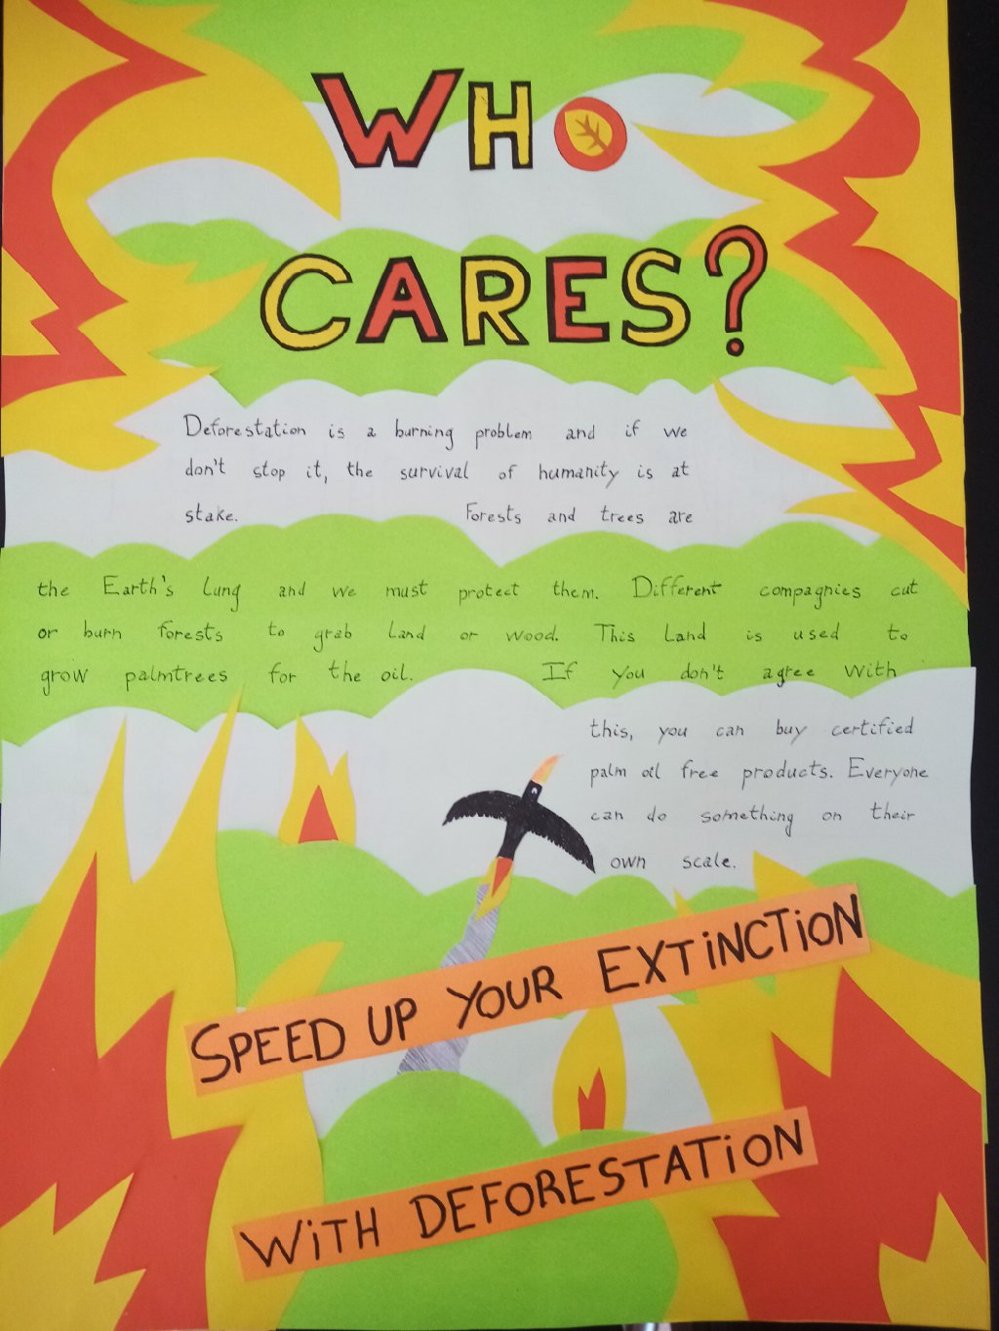 WHO
CARES?
Deforestation is a burning problem and if we
don't stop it, the survival of humanity is at
stake. Forests and trees are
the Earth's lung and we must protect them. Different compagnies cut
or burn forests to grab land or wood. This land is used to
grow palmtrees for the oil. If you don't agree with
this, you can buy certified
palm oil free products. Everyone
can do something on their
own scale.
SPEED UP YOUR EXTiNCTiON
WiTH DEFORESTATiON